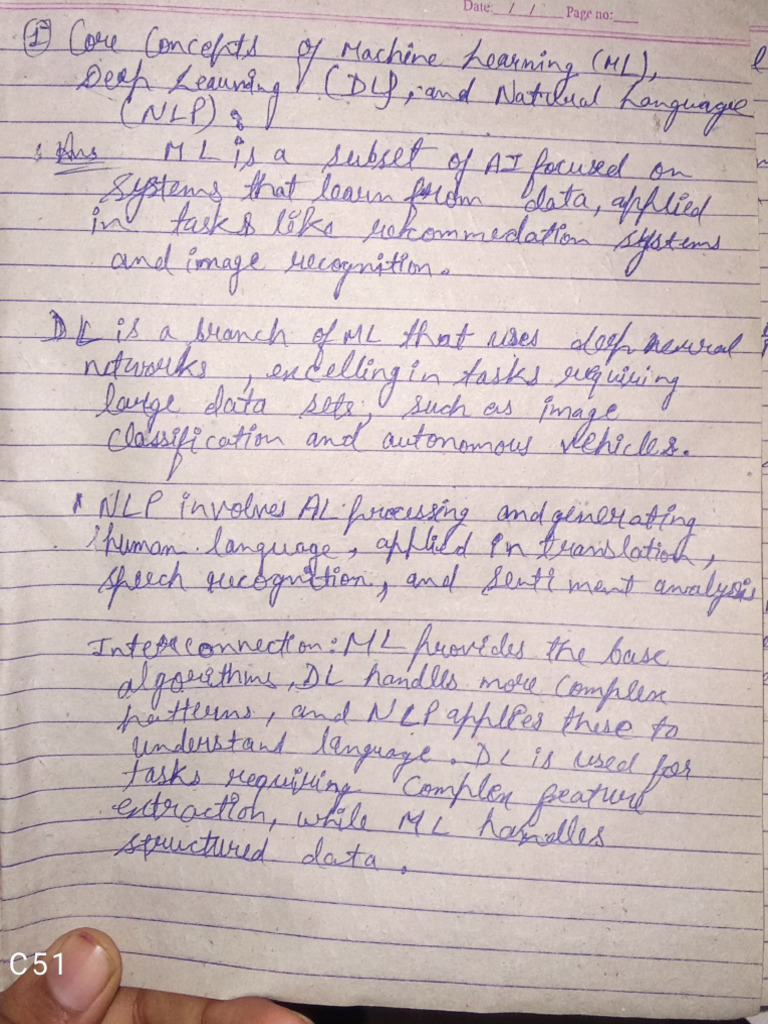 Date: / / Page no:
1 Core Concepts of Machine Learning (ML),
Deep Learning (DL), and Natural Language
(NLP) :
Ans ML is a subset of AI focused on
systems that learn from data, applied
in tasks like rekommedation systems
and image recognition.
DL is a branch of ML that uses deep neural
networks, excelling in tasks requiring
large data sets, such as image
classification and autonomous vehicles.
NLP involves AI processing and generating
human language, applied in translation,
speech recognition, and sentiment analysis
Interconnection: ML provides the base
algorithms, DL handles more complex
patterns, and NLP applies these to
understand language. DL is used for
tasks requiring complex feature
extraction, while ML handles
structured data.
C51